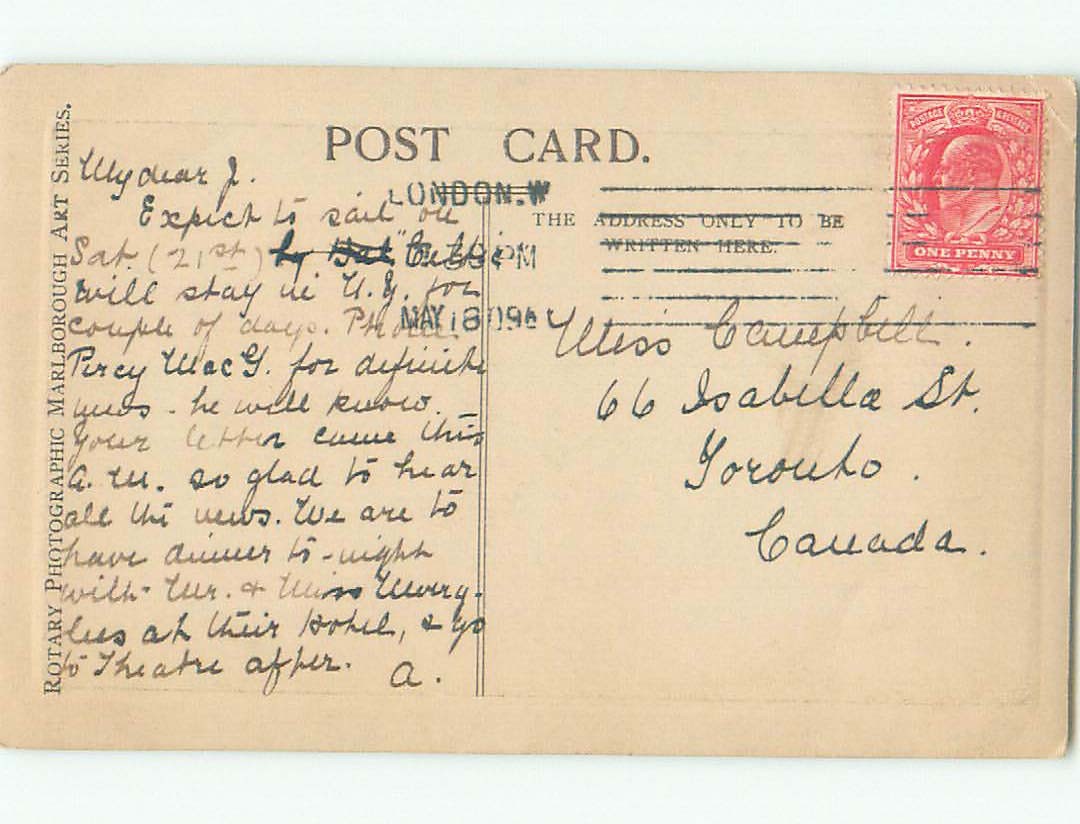 ROTARY PHOTOGRAPHIC MARLBOROUGH ART SERIES.
POST CARD.
THE ADDRESS ONLY TO BE
WRITTEN HERE.
POSTAGE REVENUE
ONE PENNY
LONDON.W
PM
MAY 18 09
My dear J.
Expect to sail on
Sat. (21st) by
will stay in N.Y. for
couple of days. Phone
Percy MacG. for definite
news - he will know.
Your letter came this
A.M. so glad to hear
all the news. We are to
have dinner to-night
with Mr. & Miss
at their Hotel, & go
to Theatre after. A.
Miss Campbell.
66 Isabella St.
Toronto.
Canada.